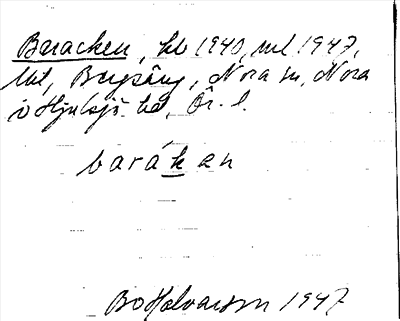 Baracken, kb 1940, ml 1947,
lht, Bergsäng, Nora sn, Nora
o Hjulsjö hd, Ör. l.
barákan
Bo Halvarson 1947